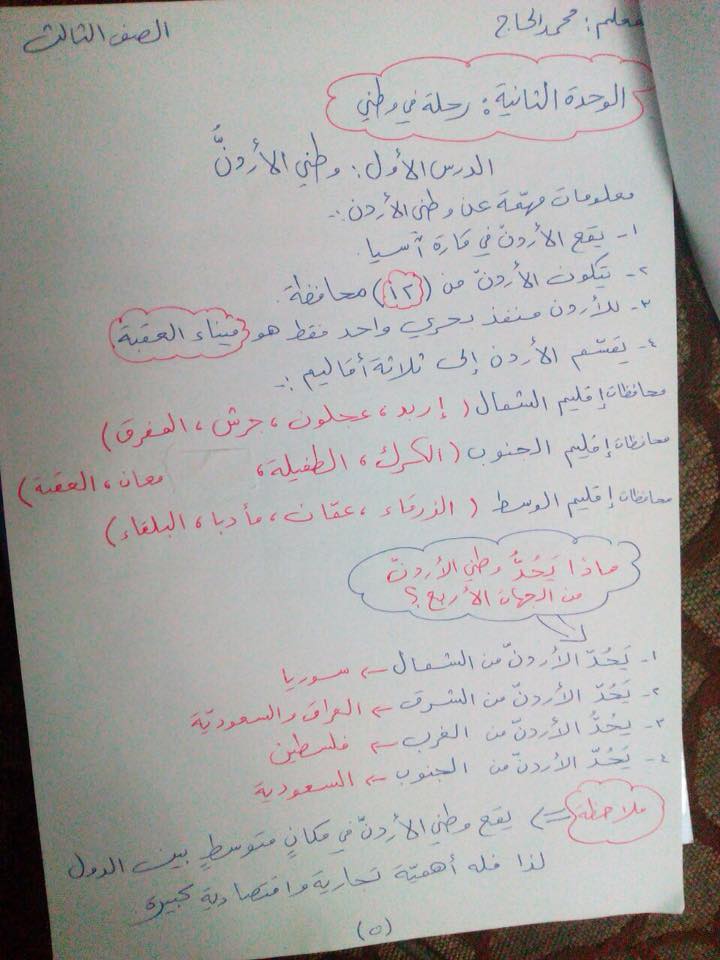 معلم : محمد الحاج
الصف الثالث
الوحدة الثانية : رحلة في وطني
الدرس الأول : وطني الأردنُّ
معلومات مهمّة عن وطني الأردن :-
١- يقع الأردنّ في قارة آسيا
٢- يتكون الأردنّ من (١٢) محافظة.
٣- للأردن منفذ بحري واحد فقط هو ميناء العقبة
٤- يقسّم الأردن إلى ثلاثة أقاليم :-
محافظات إقليم الشمال ( إربد ، عجلون ، جرش ، المفرق )
محافظات إقليم الجنوب ( الكرك ، الطفيلة ، معان ، العقبة )
محافظات إقليم الوسط ( الزرقاء ، عمّان ، مأدبا ، البلقاء )
ماذا يَحُدُّ وطني الأردنّ
من الجهات الأربع ؟
١- يَحُدّ الأردنّ من الشمال ← سوريا
٢- يَحُدّ الأردنّ من الشرق ← العراق والسعوديّة
٣- يحُدُّ الأردنّ من الغرب ← فلسطين
٤- يَحُدّ الأردنّ من الجنوب ← السعودية
ملاحظة ⇐ يقع وطني الأردنّ في مكانٍ متوسطٍ بين الدول
لذا فله أهميّة تجارية واقتصادية كبيرة.
(٥)